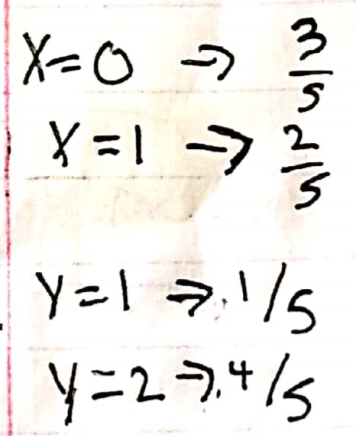 X=0 → 3/5
X=1 → 2/5
Y=1 → 1/5
Y=2 → 4/5